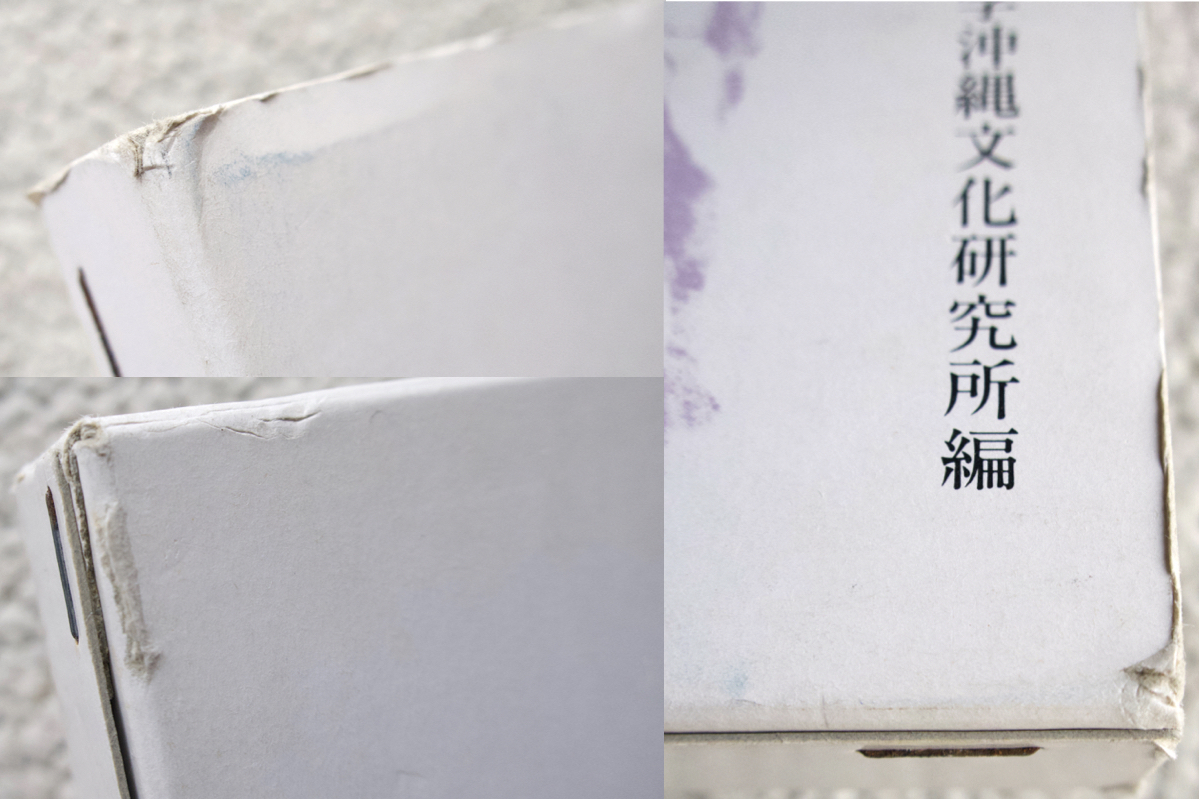 学沖縄文化研究所編